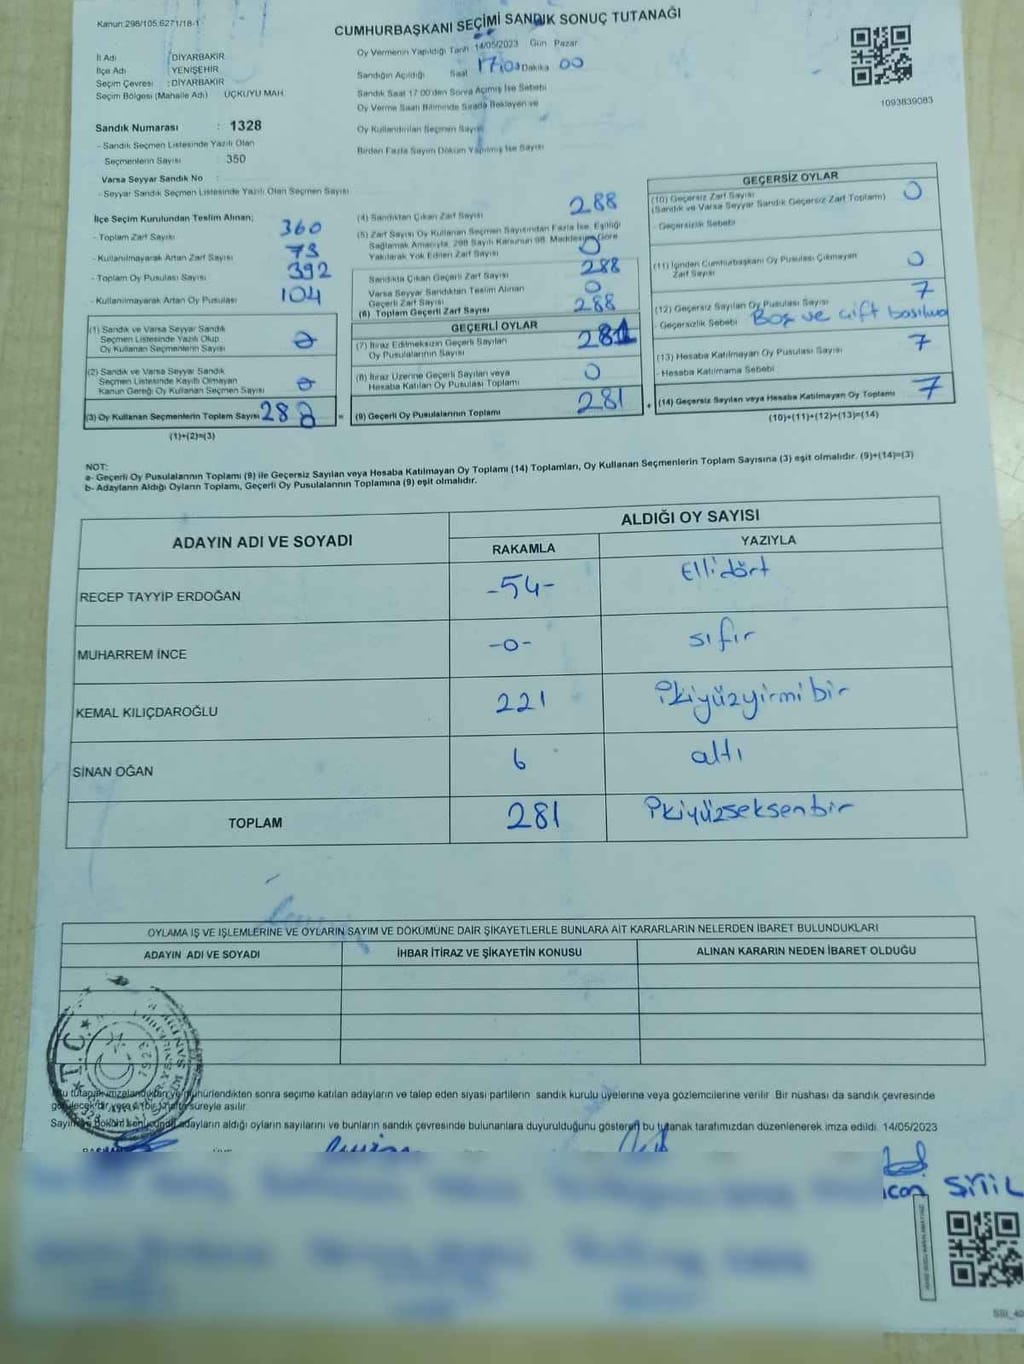 Kanun:298/105,6271/18-1
CUMHURBAŞKANI SEÇİMİ SANDIK SONUÇ TUTANAĞI
İl Adı : DİYARBAKIR
İlçe Adı : YENİŞEHİR
Seçim Çevresi : DİYARBAKIR
Seçim Bölgesi (Mahalle Adı) : ÜÇKUYU MAH.
Oy Vermenin Yapıldığı Tarih 14/05/2023 Gün Pazar
Sandığın Açıldığı Saat 17:00 Dakika 00
Sandık Saat 17:00'den Sonra Açılmış İse Sebebi
Oy Verme Saati Bitiminde Sırada Bekleyen ve
Oy Kullandırılan Seçmen Sayısı
Birden Fazla Sayım Döküm Yapılmış İse Sayısı
1093839083
Sandık Numarası : 1328
- Sandık Seçmen Listesinde Yazılı Olan
Seçmenlerin Sayısı : 350
Varsa Seyyar Sandık No
- Seyyar Sandık Seçmen Listesinde Yazılı Olan Seçmen Sayısı
İlçe Seçim Kurulundan Teslim Alınan;
- Toplam Zarf Sayısı 360
- Kullanılmayarak Artan Zarf Sayısı 73
- Toplam Oy Pusulası Sayısı 392
- Kullanılmayarak Artan Oy Pusulası 104
(1) Sandık ve Varsa Seyyar Sandık
Seçmen Listesinde Yazılı Olup
Oy Kullanan Seçmenlerin Sayısı
(2) Sandık ve Varsa Seyyar Sandık
Seçmen Listesinde Kayıtlı Olmayan
Kanun Gereği Oy Kullanan Seçmen Sayısı
(3) Oy Kullanan Seçmenlerin Toplam Sayısı 288
(1)+(2)=(3)
(4) Sandıktan Çıkan Zarf Sayısı 288
(5) Zarf Sayısı Oy Kullanan Seçmen Sayısından Fazla İse, Eşitliği
Sağlamak Amacıyla, 298 Sayılı Kanunun 98. Maddesine Göre
Yakılarak Yok Edilen Zarf Sayısı 0
Sandıkta Çıkan Geçerli Zarf Sayısı 288
Varsa Seyyar Sandıktan Teslim Alınan
Geçerli Zarf Sayısı 0
(6) Toplam Geçerli Zarf Sayısı 288
GEÇERLİ OYLAR
(7) İtiraz Edilmeksizin Geçerli Sayılan
Oy Pusulalarının Sayısı 281
(8) İtiraz Üzerine Geçerli Sayılan veya
Hesaba Katılan Oy Pusulası Toplamı 0
= (9) Geçerli Oy Pusulalarının Toplamı 281
GEÇERSİZ OYLAR
(10) Geçersiz Zarf Sayısı
(Sandık ve Varsa Seyyar Sandık Geçersiz Zarf Toplamı) 0
- Geçersizlik Sebebi
(11) İçinden Cumhurbaşkanı Oy Pusulası Çıkmayan
Zarf Sayısı 0
(12) Geçersiz Sayılan Oy Pusulası Sayısı 7
- Geçersizlik Sebebi Boş ve çift
(13) Hesaba Katılmayan Oy Pusulası Sayısı 7
- Hesaba Katılmama Sebebi
+ (14) Geçersiz Sayılan veya Hesaba Katılmayan Oy Toplamı 7
(10)+(11)+(12)+(13)=(14)
NOT:
a- Geçerli Oy Pusulalarının Toplamı (9) ile Geçersiz Sayılan veya Hesaba Katılmayan Oy Toplamı (14) Toplamları, Oy Kullanan Seçmenlerin Toplam Sayısına (3) eşit olmalıdır. (9)+(14)=(3)
b- Adayların Aldığı Oyların Toplamı, Geçerli Oy Pusulalarının Toplamına (9) eşit olmalıdır.
ADAYIN ADI VE SOYADI
ALDIĞI OY SAYISI
RAKAMLA YAZIYLA
RECEP TAYYİP ERDOĞAN -54- Ellidört
MUHARREM İNCE -0- sıfır
KEMAL KILIÇDAROĞLU 221 ikiyüzyirmibir
SİNAN OĞAN 6 altı
TOPLAM 281 ikiyüzseksenbir
OYLAMA İŞ VE İŞLEMLERİNE VE OYLARIN SAYIM VE DÖKÜMÜNE DAİR ŞİKAYETLERLE BUNLARA AİT KARARLARIN NELERDEN İBARET BULUNDUKLARI
ADAYIN ADI VE SOYADI İHBAR İTİRAZ VE ŞİKAYETİN KONUSU ALINAN KARARIN NEDEN İBARET OLDUĞU
T.C.
1923
sonra seçime katılan adayların ve talep eden siyasi partilerin sandık kurulu üyelerine veya gözlemcilerine verilir. Bir nüshası da sandık çevresinde
süreyle asılır.
adayların aldığı oyların sayılarını ve bunların sandık çevresinde bulunanlara duyurulduğunu gösteren bu tutanak tarafımızdan düzenlenerek imza edildi. 14/05/2023